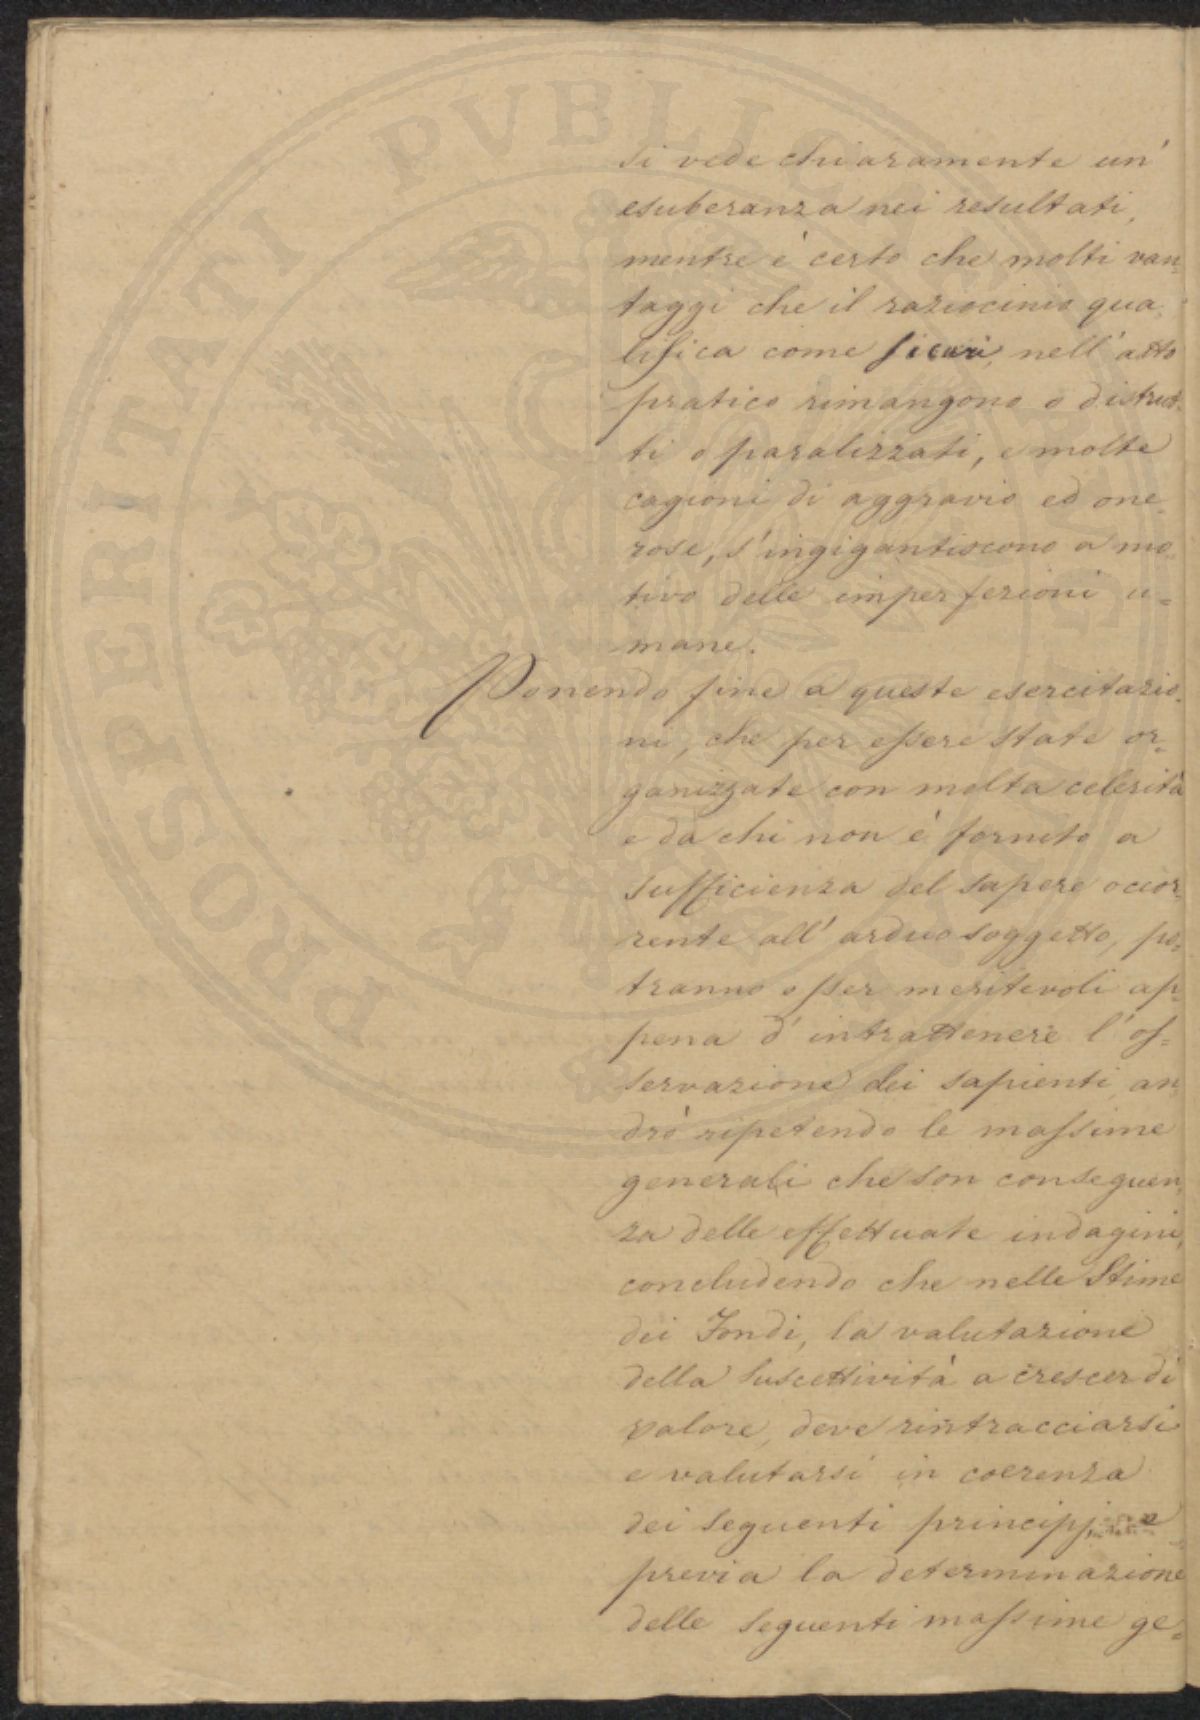 si vede chiaramente un'
esuberanza nei resultati,
mentre è certo che molti van=
taggi che il raziocinio qua=
lifica come sicuri, nell'atto
pratico rimangono o distrut=
ti o paralizzati, e molte
cagioni di aggravio ed one=
rose, s'ingigantiscono a mo=
tivo delle imperfezioni u=
mane.
Ponendo fine a queste esercitazio=
ni, che per essere state or=
ganizzate con molta celerità
e da chi non è fornito a
sufficienza del sapere occor=
rente all'arduo soggetto, po=
tranno esser meritevoli ap=
pena d'intrattenere l'os=
servazione dei sapienti, an=
drò ripetendo le massime
generali che son conseguen=
za delle effettuate indagini,
concludendo che nelle Stime
dei Fondi, la valutazione
della suscettività a crescer di
valore, deve rintracciarsi
e valutarsi in coerenza
dei seguenti principj, e
previa la determinazione
delle seguenti massime ge=
PROSPERITATI PUBLICAE